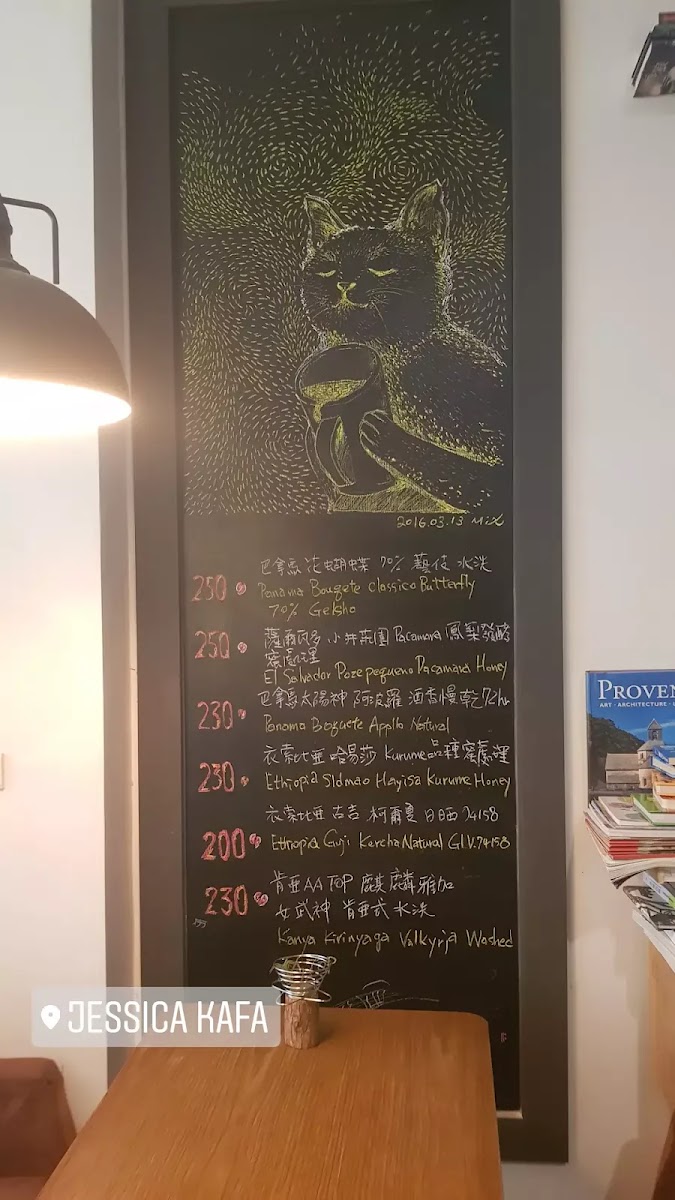 2016.03.13 Mix
巴拿馬 花蝴蝶 70% 藝伎 水洗
250
Panama Bouqete Classico Butterfly
70% Geisha
薩爾瓦多 小井莊園 Pacamara 鳳梨發酵
250
蜜處理
El Salvador Pozepequeno Pacamara Honey
巴拿馬太陽神 阿波羅 酒香慢乾72hr
230
Panama Boquete Apollo Natural
衣索比亞 哈易莎 Kurume品種蜜處理
230
Ethiopia Sidmao Hayisa Kurume Honey
衣索比亞 古吉 柯爾夏 日晒 74158
200
Ethiopia Guji Kercha Natural G1 V.74158
肯亞AA TOP 麒麟雅加
230
女武神 肯亞式水洗
Kanya Kirinyaga Valkyrja Washed
JESSICA KAFA
PROVEN
ART · ARCHITECTURE ·